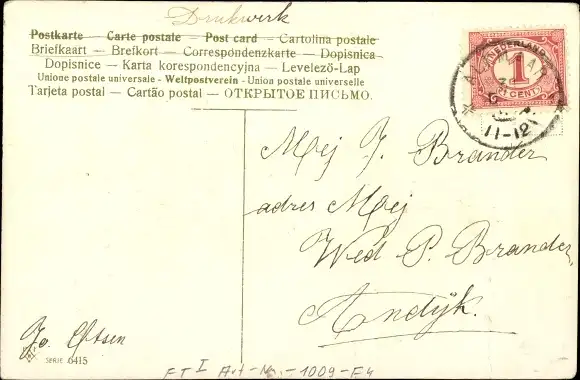 Drukwerk
Postkarte — Carte postale — Post card — Cartolina postale
Briefkaart — Brefkort — Correspondenzkarte — Dopisnica
Dopisnice — Karta korespondencyjna — Levelező-Lap
Unione postale universale - Weltpostverein - Union postale universelle
Tarjeta postal — Cartão postal — ОТКРЫТОЕ ПИСЬМО.
NEDERLAND
1
CENT
11-12
Mej J. Brander
adres Mej
Wed P. Brander
Andijk.
Jo
SERIE 6415
FT I Art-No-1009-F4